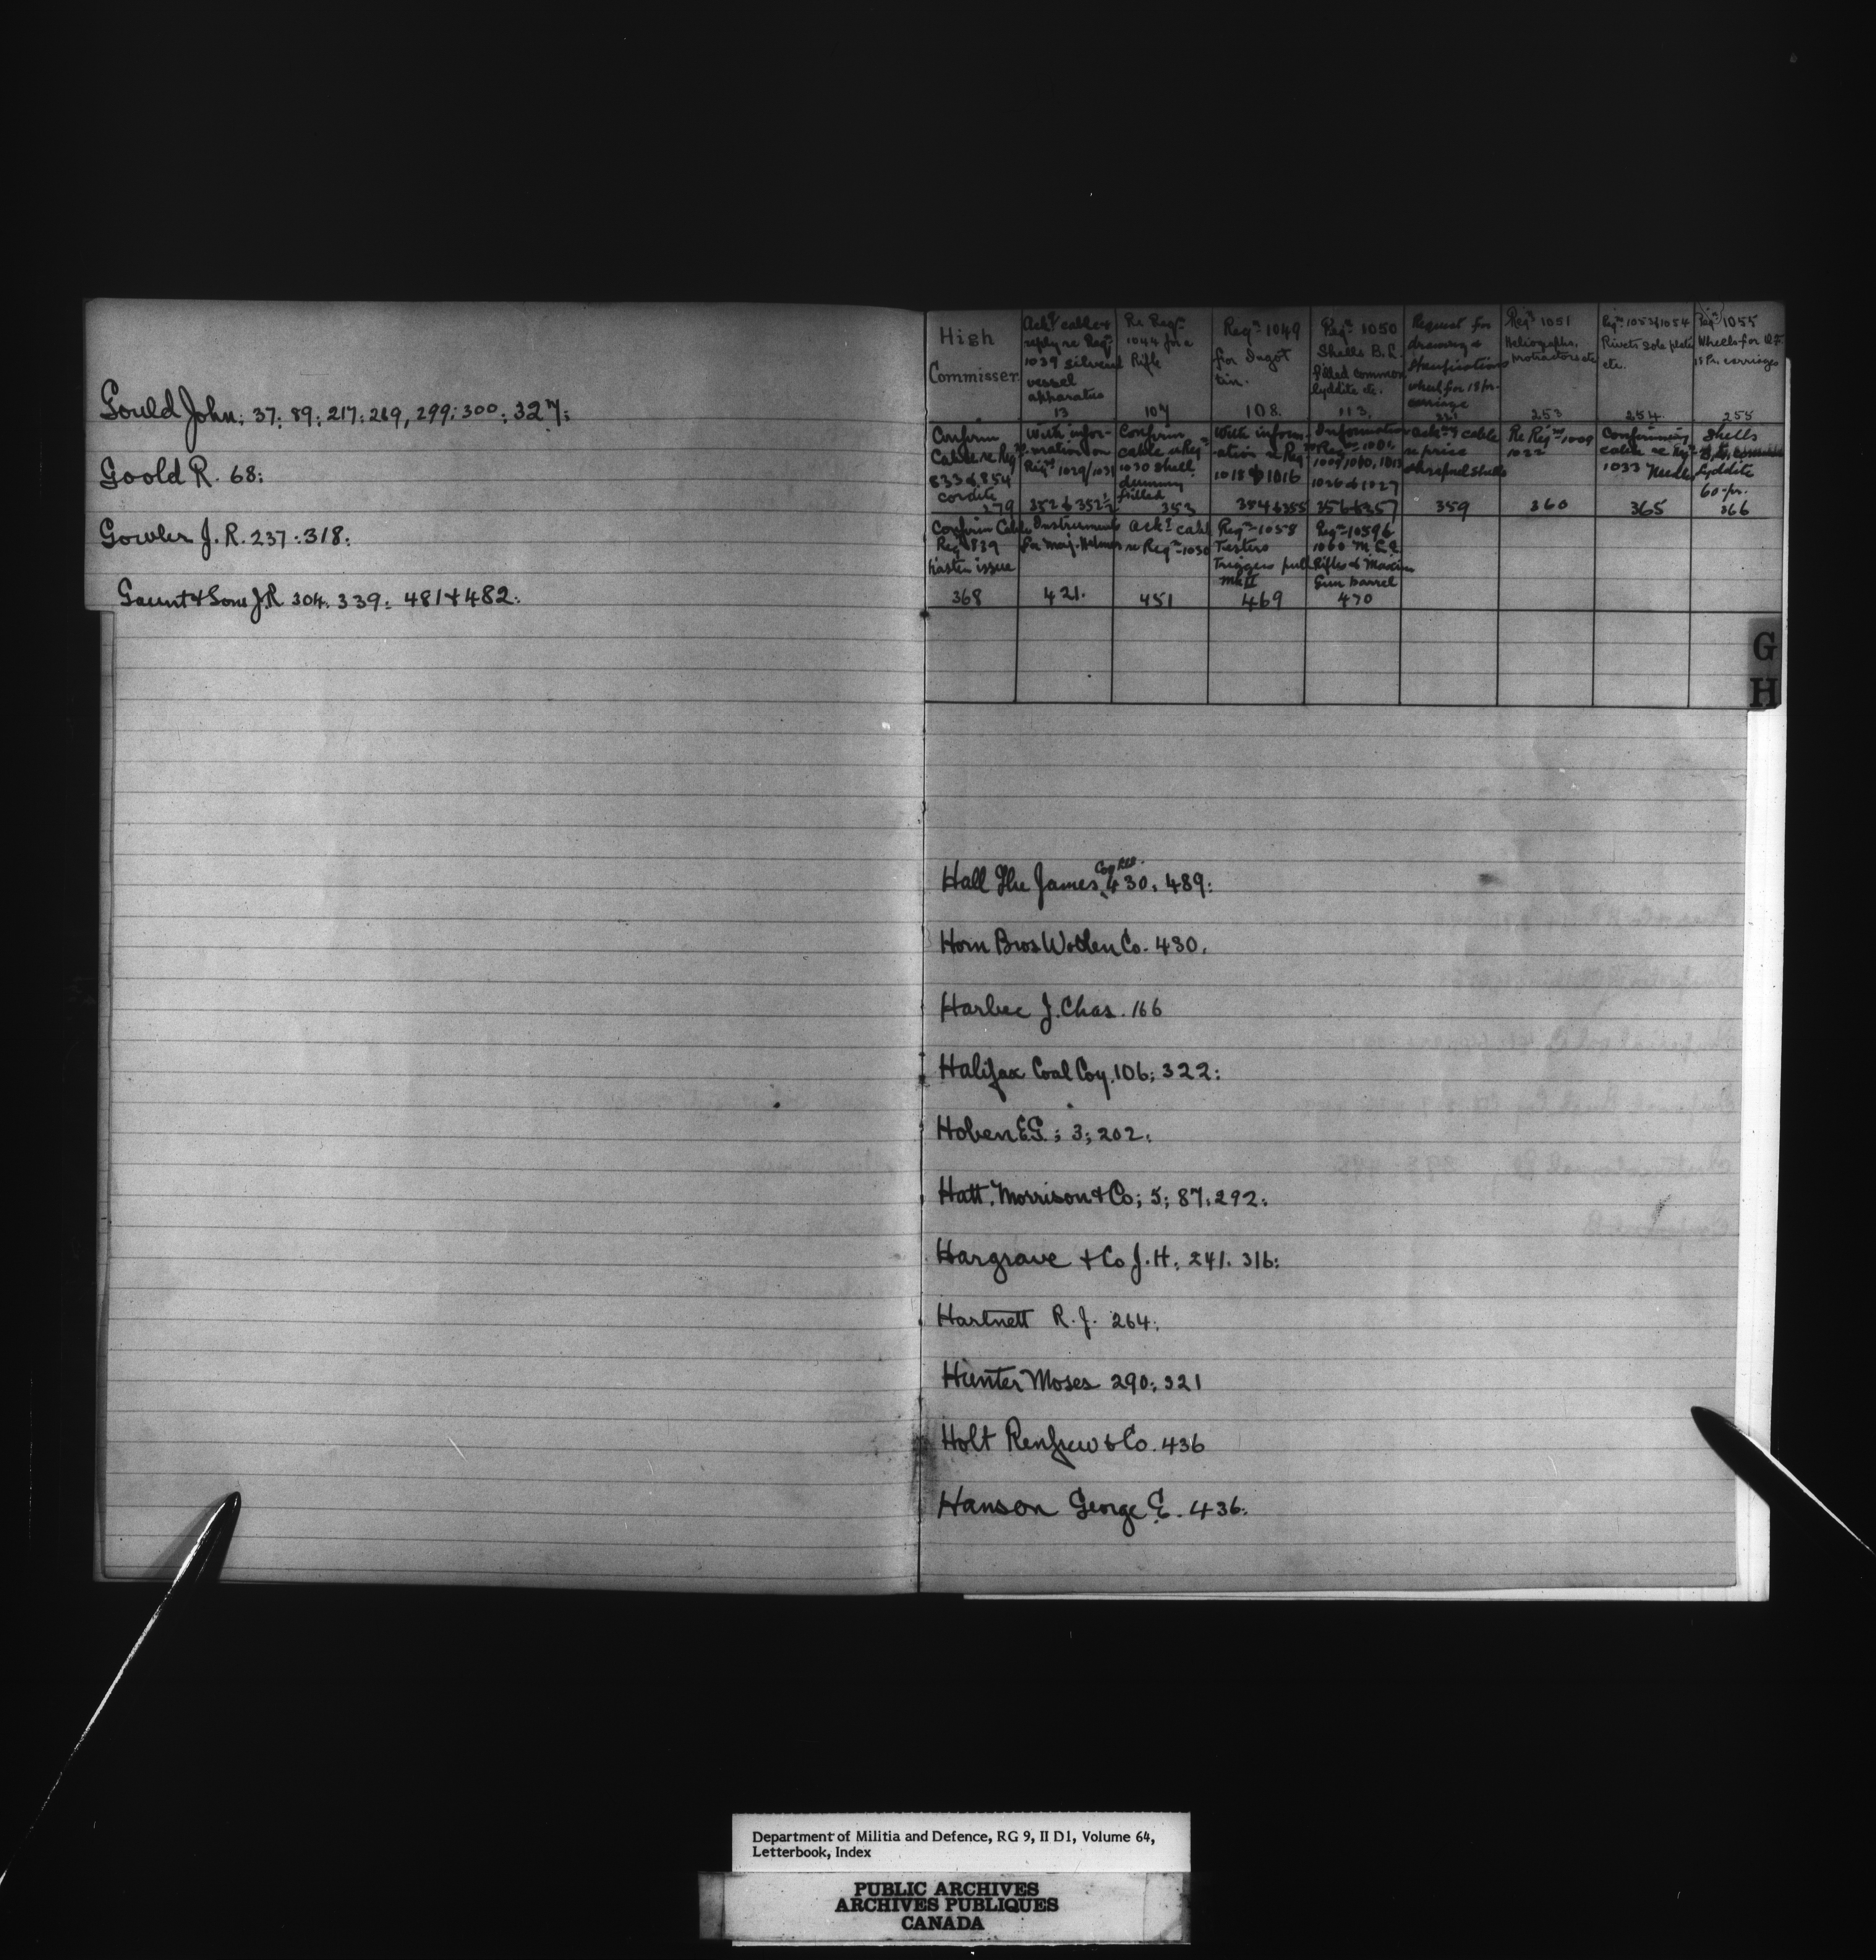 Gould John; 37; 89; 217; 269, 299; 300; 327;
Goold R. 68;
Gowler J. R. 237; 318;
Gaunt & Sons J.R 304. 339; 481 & 482;
High
Commisser
Ack^t cable &
reply re Req^n
1039 silvered
vessel
apparatus
13
Re Req^n
1044 for a
Rifle
107
Req^n 1049
for Ingot
tin.
108.
Req^n 1050
Shells B.L.
filled common
lyddite etc.
113.
Request for
drawing &
Specifications
wheel for 18 pr.
carriage
Req^n 1051
Heliographs,
protractors etc
253
Req^n 1053 & 1054
Rivets Sole plate
etc.
254.
Req^n 1055
Wheels for Q.F.
18 Pr. carriages
255
Confirm
Cable re Req^n
833 & 854
cordite
279
With infor-
mation on
Req^n 1029/1031
352 & 352½
Confirm
cable re Req^n
1030 Shell
dummy
filled
353
With inform-
ation re Req^n
1018 & 1016
354 & 355
Information
1026 & 1027
356 & 357
Ack^ng cable
re price
shrapnel shells
359
Re Req^n 1009
1032
360
Confirming
cable re Req^n
1033 Needles
365
Shells
Lyddite
60-pr.
366
Confirm Cable
Req^n 839
hasten issue
368
Instruments
for Maj. Helmer
421.
Ack^t cable
re Req^n 1030
451
Req^n 1058
Testers
Triggers pull
Mk II
469
Req^n 1059 &
1060 M.L.E.
Rifles & Maxim
Gun barrel
470
G
H
Hall The James Coy Ltd. 430; 489;
Horn Bros Woollen Co. 430.
Harbec J. Chas. 166
Halifax Coal Coy. 106; 322;
Hoben E.G.; 3; 202;
Hatt, Morrison & Co; 5; 87; 292;
Hargrave & Co J. H; 241. 316;
Hartnett R. J. 264;
Hunter Moses 290; 321
Holt Renfrew & Co. 436
Hanson George E. 436.
Department of Militia and Defence, RG 9, II D1, Volume 64,
Letterbook, Index
PUBLIC ARCHIVES
ARCHIVES PUBLIQUES
CANADA